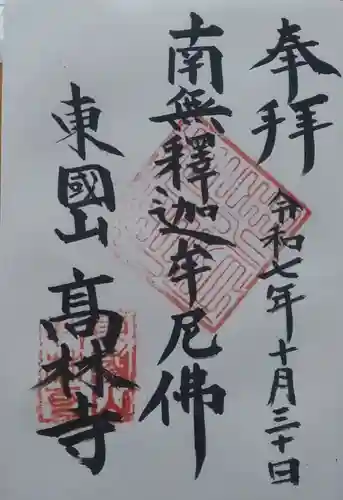 奉拝
令和七年十月三十日
南無釋迦牟尼佛
東國山
髙林寺